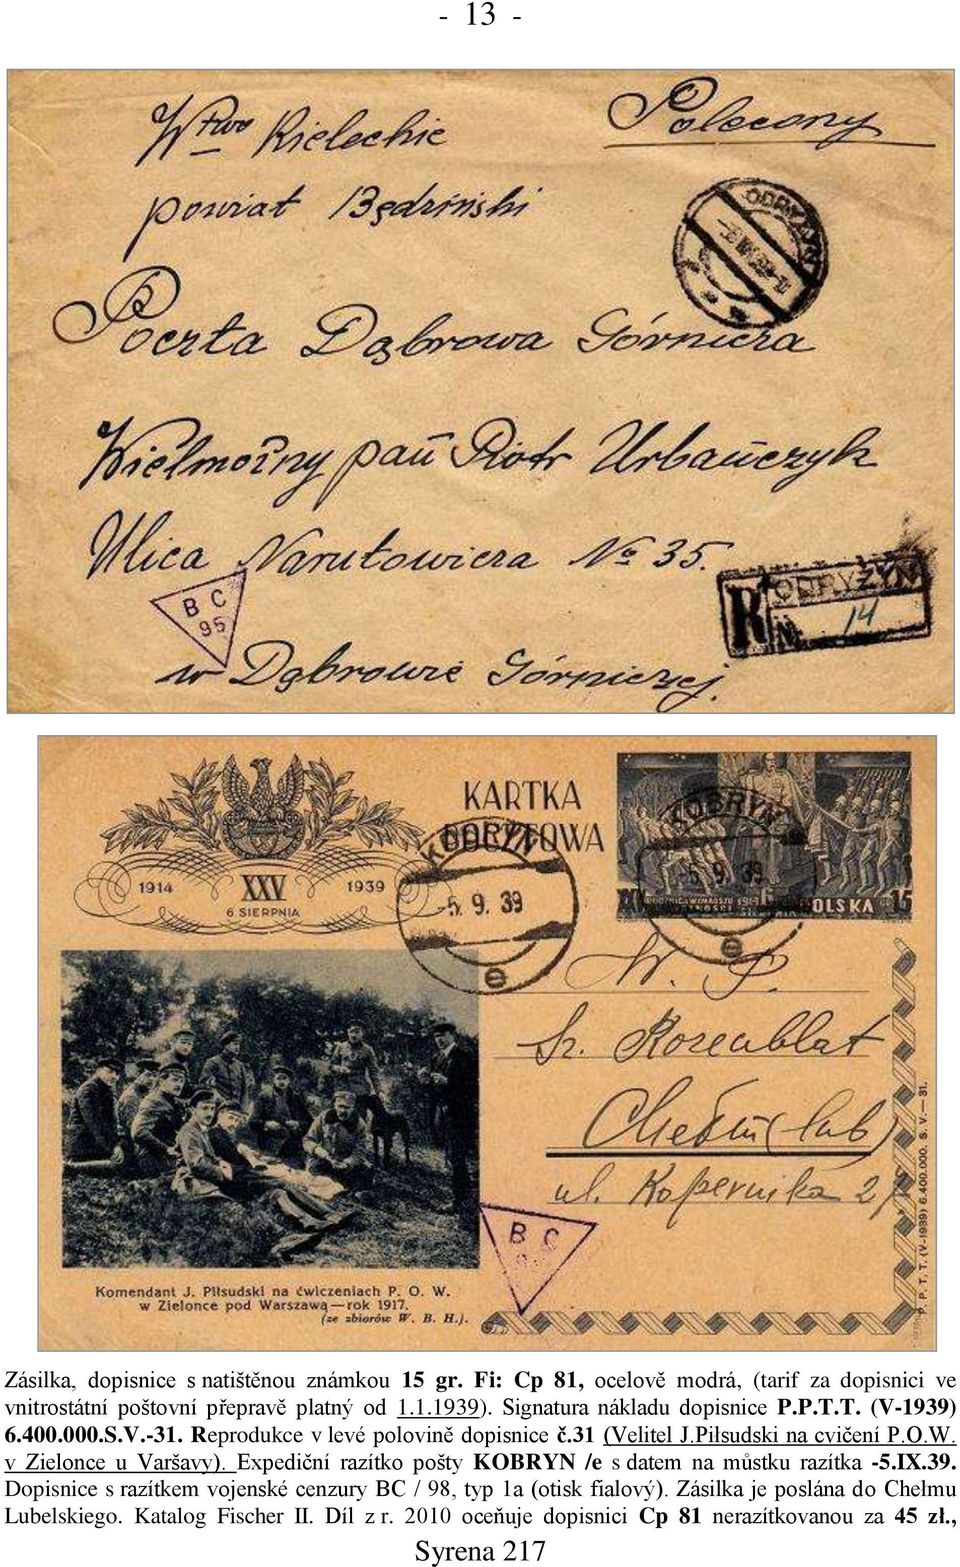 - 13 -
Wtwo Kieleckie
Polecony
powiat Będziński
ODRYŻYN
Poczta Dąbrowa Górnicza
Wielmożny pan Piotr Urbańczyk
Ulica Narutowicza № 35.
B C
95
R ODRYŻYN
N 14
w Dąbrowie Górniczej.
KARTKA
POCZTOWA
1914 XXV 1939
6 SIERPNIA
KOBRYN
-5. 9. 39
e
KOBRYN
-5. 9. 39
e
POLSKA
GR 15
W. P.
Sz. Rozenblat
Chełm (lub)
ul. Kopernika 2
B C
P. P. T. T. (V-1939) 6.400.000. S. V. — 31.
Komendant J. Piłsudski na ćwiczeniach P. O. W.
w Zielonce pod Warszawą — rok 1917.
(ze zbiorów W. B. H.).
Zásilka, dopisnice s natištěnou známkou 15 gr. Fi: Cp 81, ocelově modrá, (tarif za dopisnici ve
vnitrostátní poštovní přepravě platný od 1.1.1939). Signatura nákladu dopisnice P.P.T.T. (V-1939)
6.400.000.S.V.-31. Reprodukce v levé polovině dopisnice č.31 (Velitel J.Piłsudski na cvičení P.O.W.
v Zielonce u Varšavy). Expediční razítko pošty KOBRYN /e s datem na můstku razítka -5.IX.39.
Dopisnice s razítkem vojenské cenzury BC / 98, typ 1a (otisk fialový). Zásilka je poslána do Chełmu
Lubelskiego. Katalog Fischer II. Díl z r. 2010 oceňuje dopisnici Cp 81 nerazítkovanou za 45 zł.,
Syrena 217